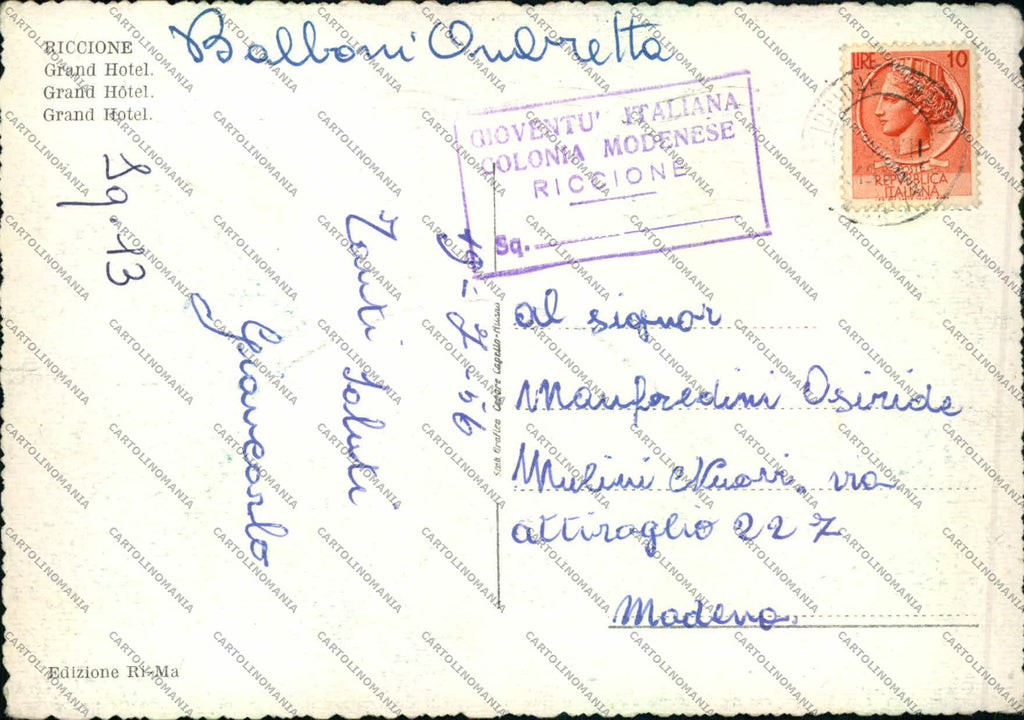 RICCIONE
Grand Hotel.
Grand Hôtel.
Grand Hotel.
Balboni Andretta
GIOVENTU' ITALIANA
COLONIA MODENESE
RICCIONE
Sq.
LIRE 10
REPUBBLICA
ITALIANA
Sq. 13
19-7-56
Tanti saluti
Giancarlo
al signor
Manfredini Osiride
Mulini Nuovi. via
attiraglio 227
Modena.
Edizione Ri-Ma
CARTOLINOMANIA